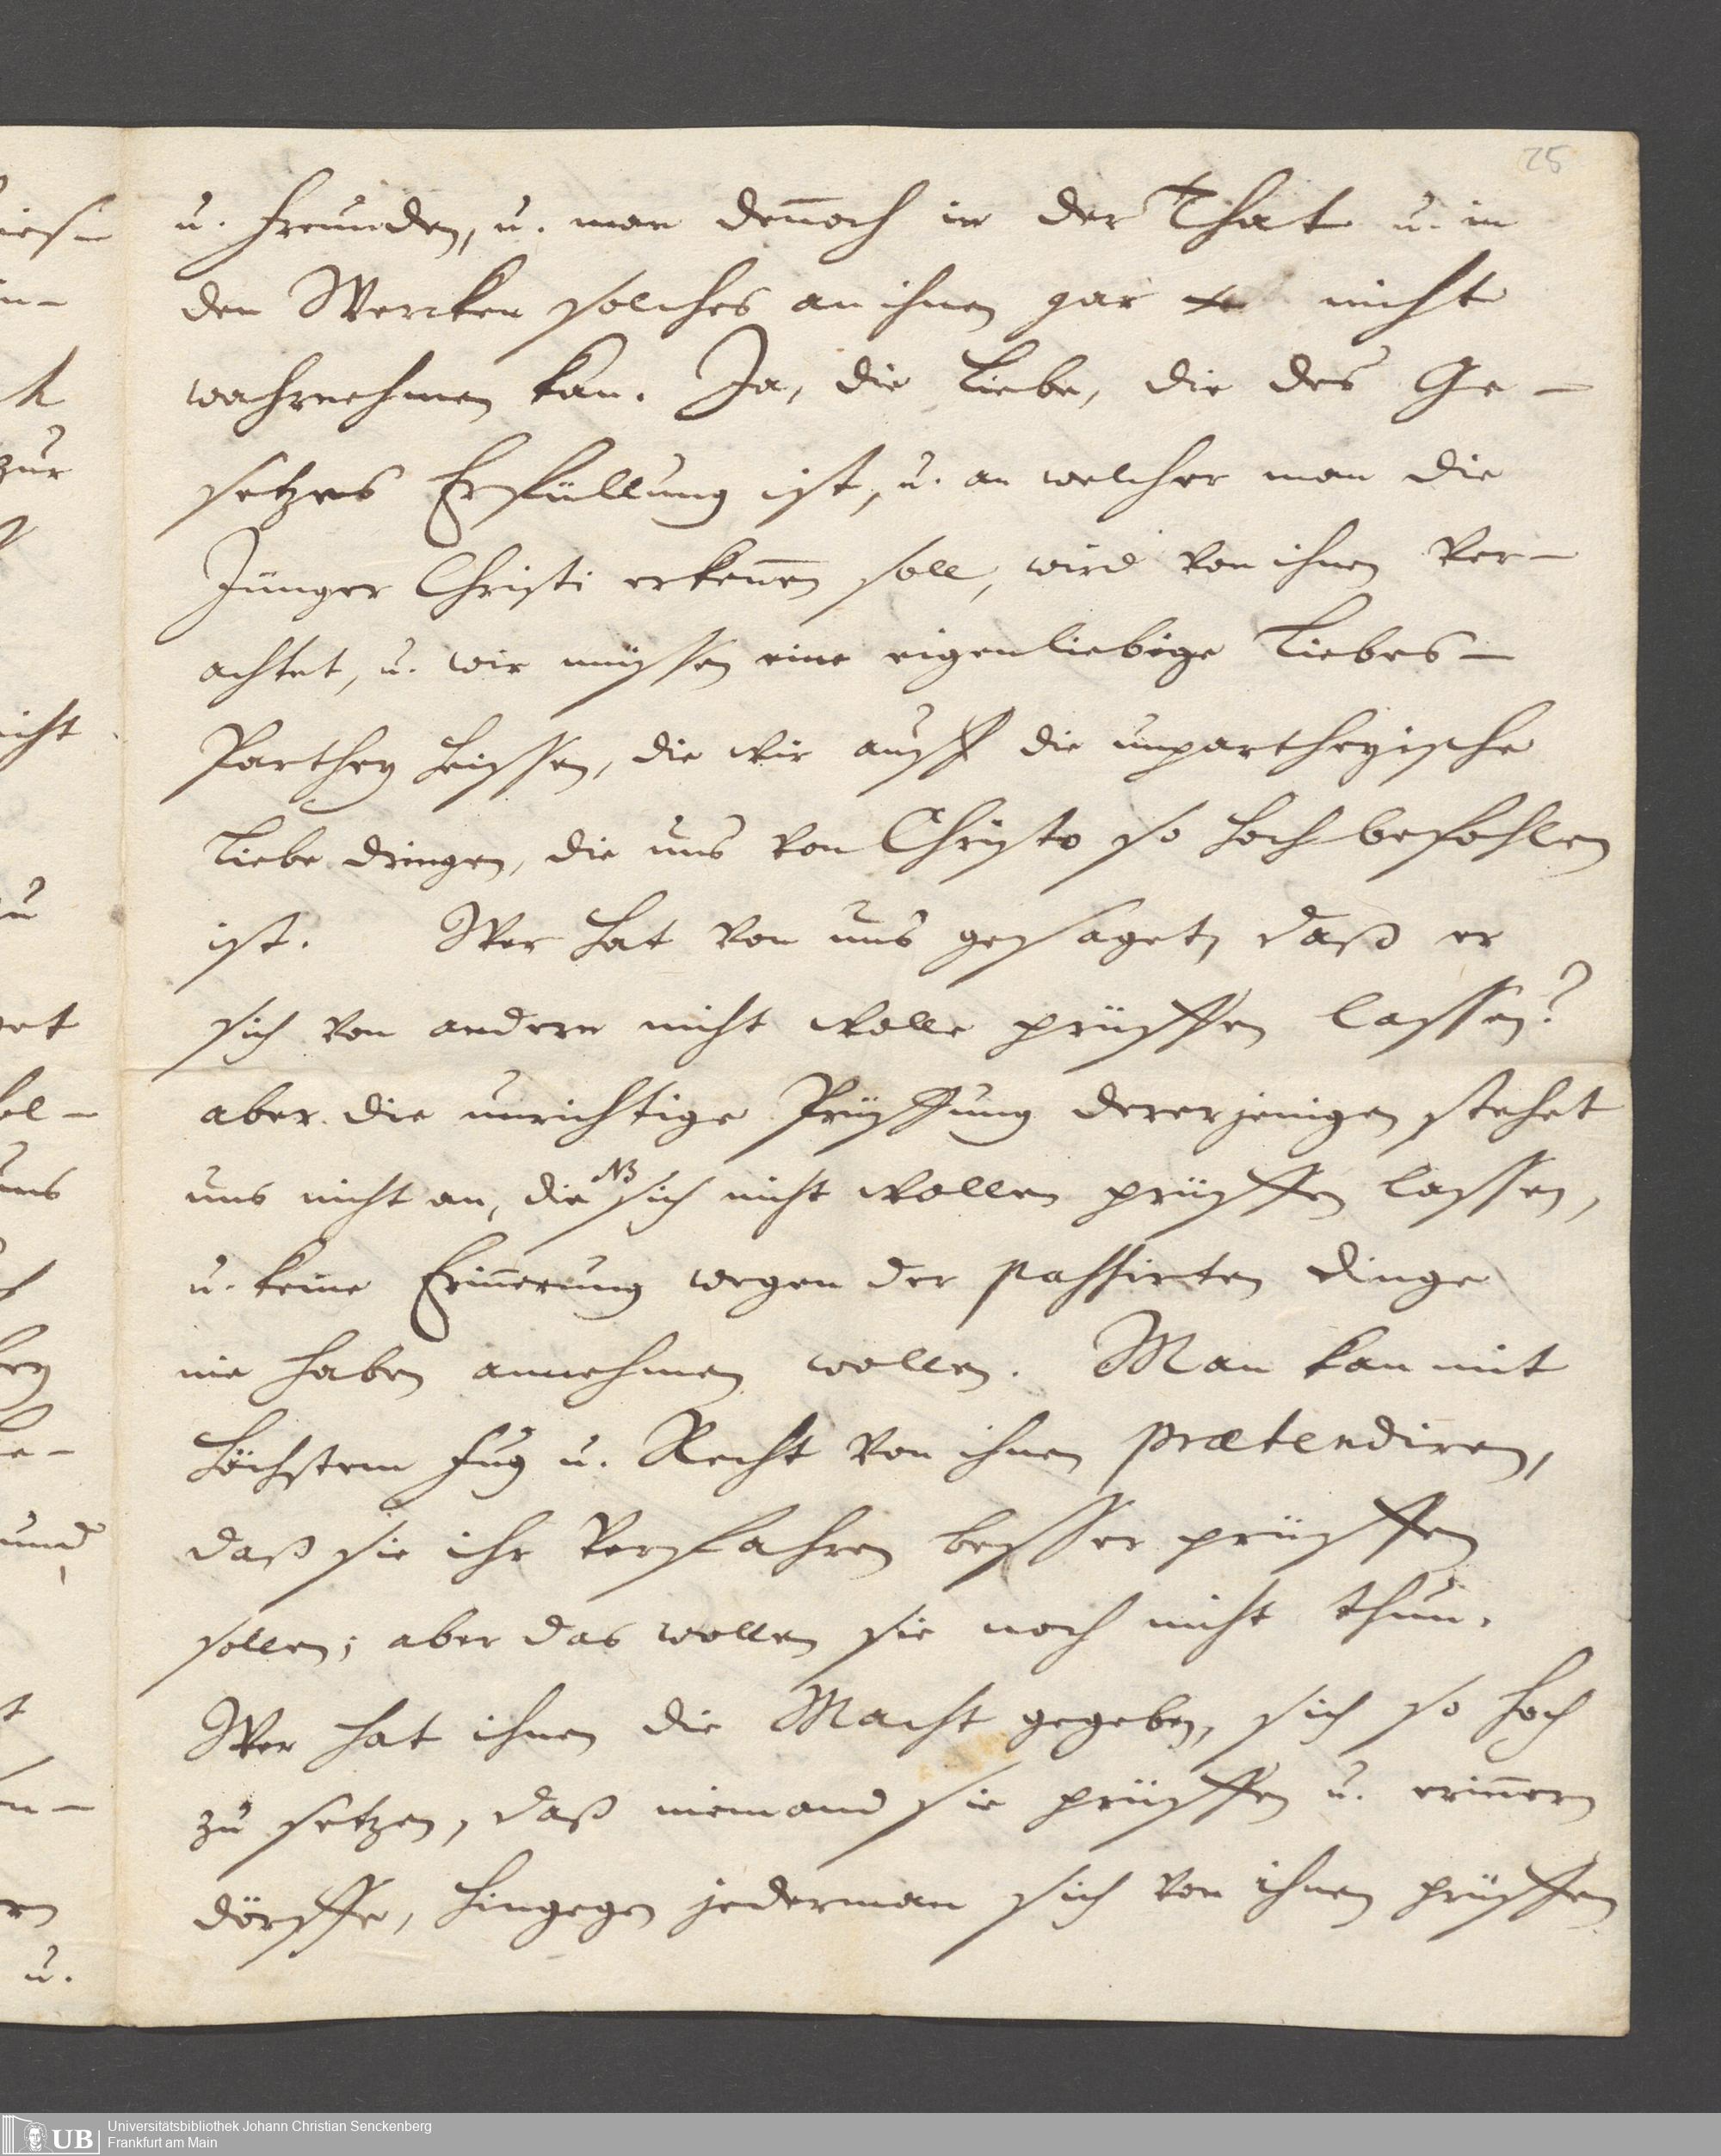 25
u. Freunden, u. man dennoch in der That u. in
den Wercken solches an ihnen gar nicht
wahrnehmen kan. Ja, die Liebe, die des Ge-
setzes Erfüllung ist, u. an welcher man die
Jünger Christi erkennen soll, wird von ihnen ver-
achtet, u. wir müssen eine eigenliebige Liebes-
Parthey heissen, die wir auff die unpartheyische
Liebe dringen, die uns von Christo so hoch befohlen
ist. Wer hat von uns gesaget, daß er
sich von andern nicht wolle prüffen lassen?
aber die unrichtige Prüffung dererjenigen stehet
uns nicht an, die NB sich nicht wollen prüffen lassen,
u. keine Erinnerung wegen der passirten Dinge
nie haben annehmen wollen. Man kan mit
höchstem Fug u. Recht von ihnen prætendiren,
daß sie ihr Verfahren besser prüffen
sollen; aber das wollen sie noch nicht thun.
Wer hat ihnen die Macht gegeben, sich so hoch
zu setzen, daß niemand sie prüffen u. erinnern
dörffe, hingegen jederman sich von ihnen prüffen
zur
icht
und
u.
UB
Universitätsbibliothek Johann Christian Senckenberg
Frankfurt am Main